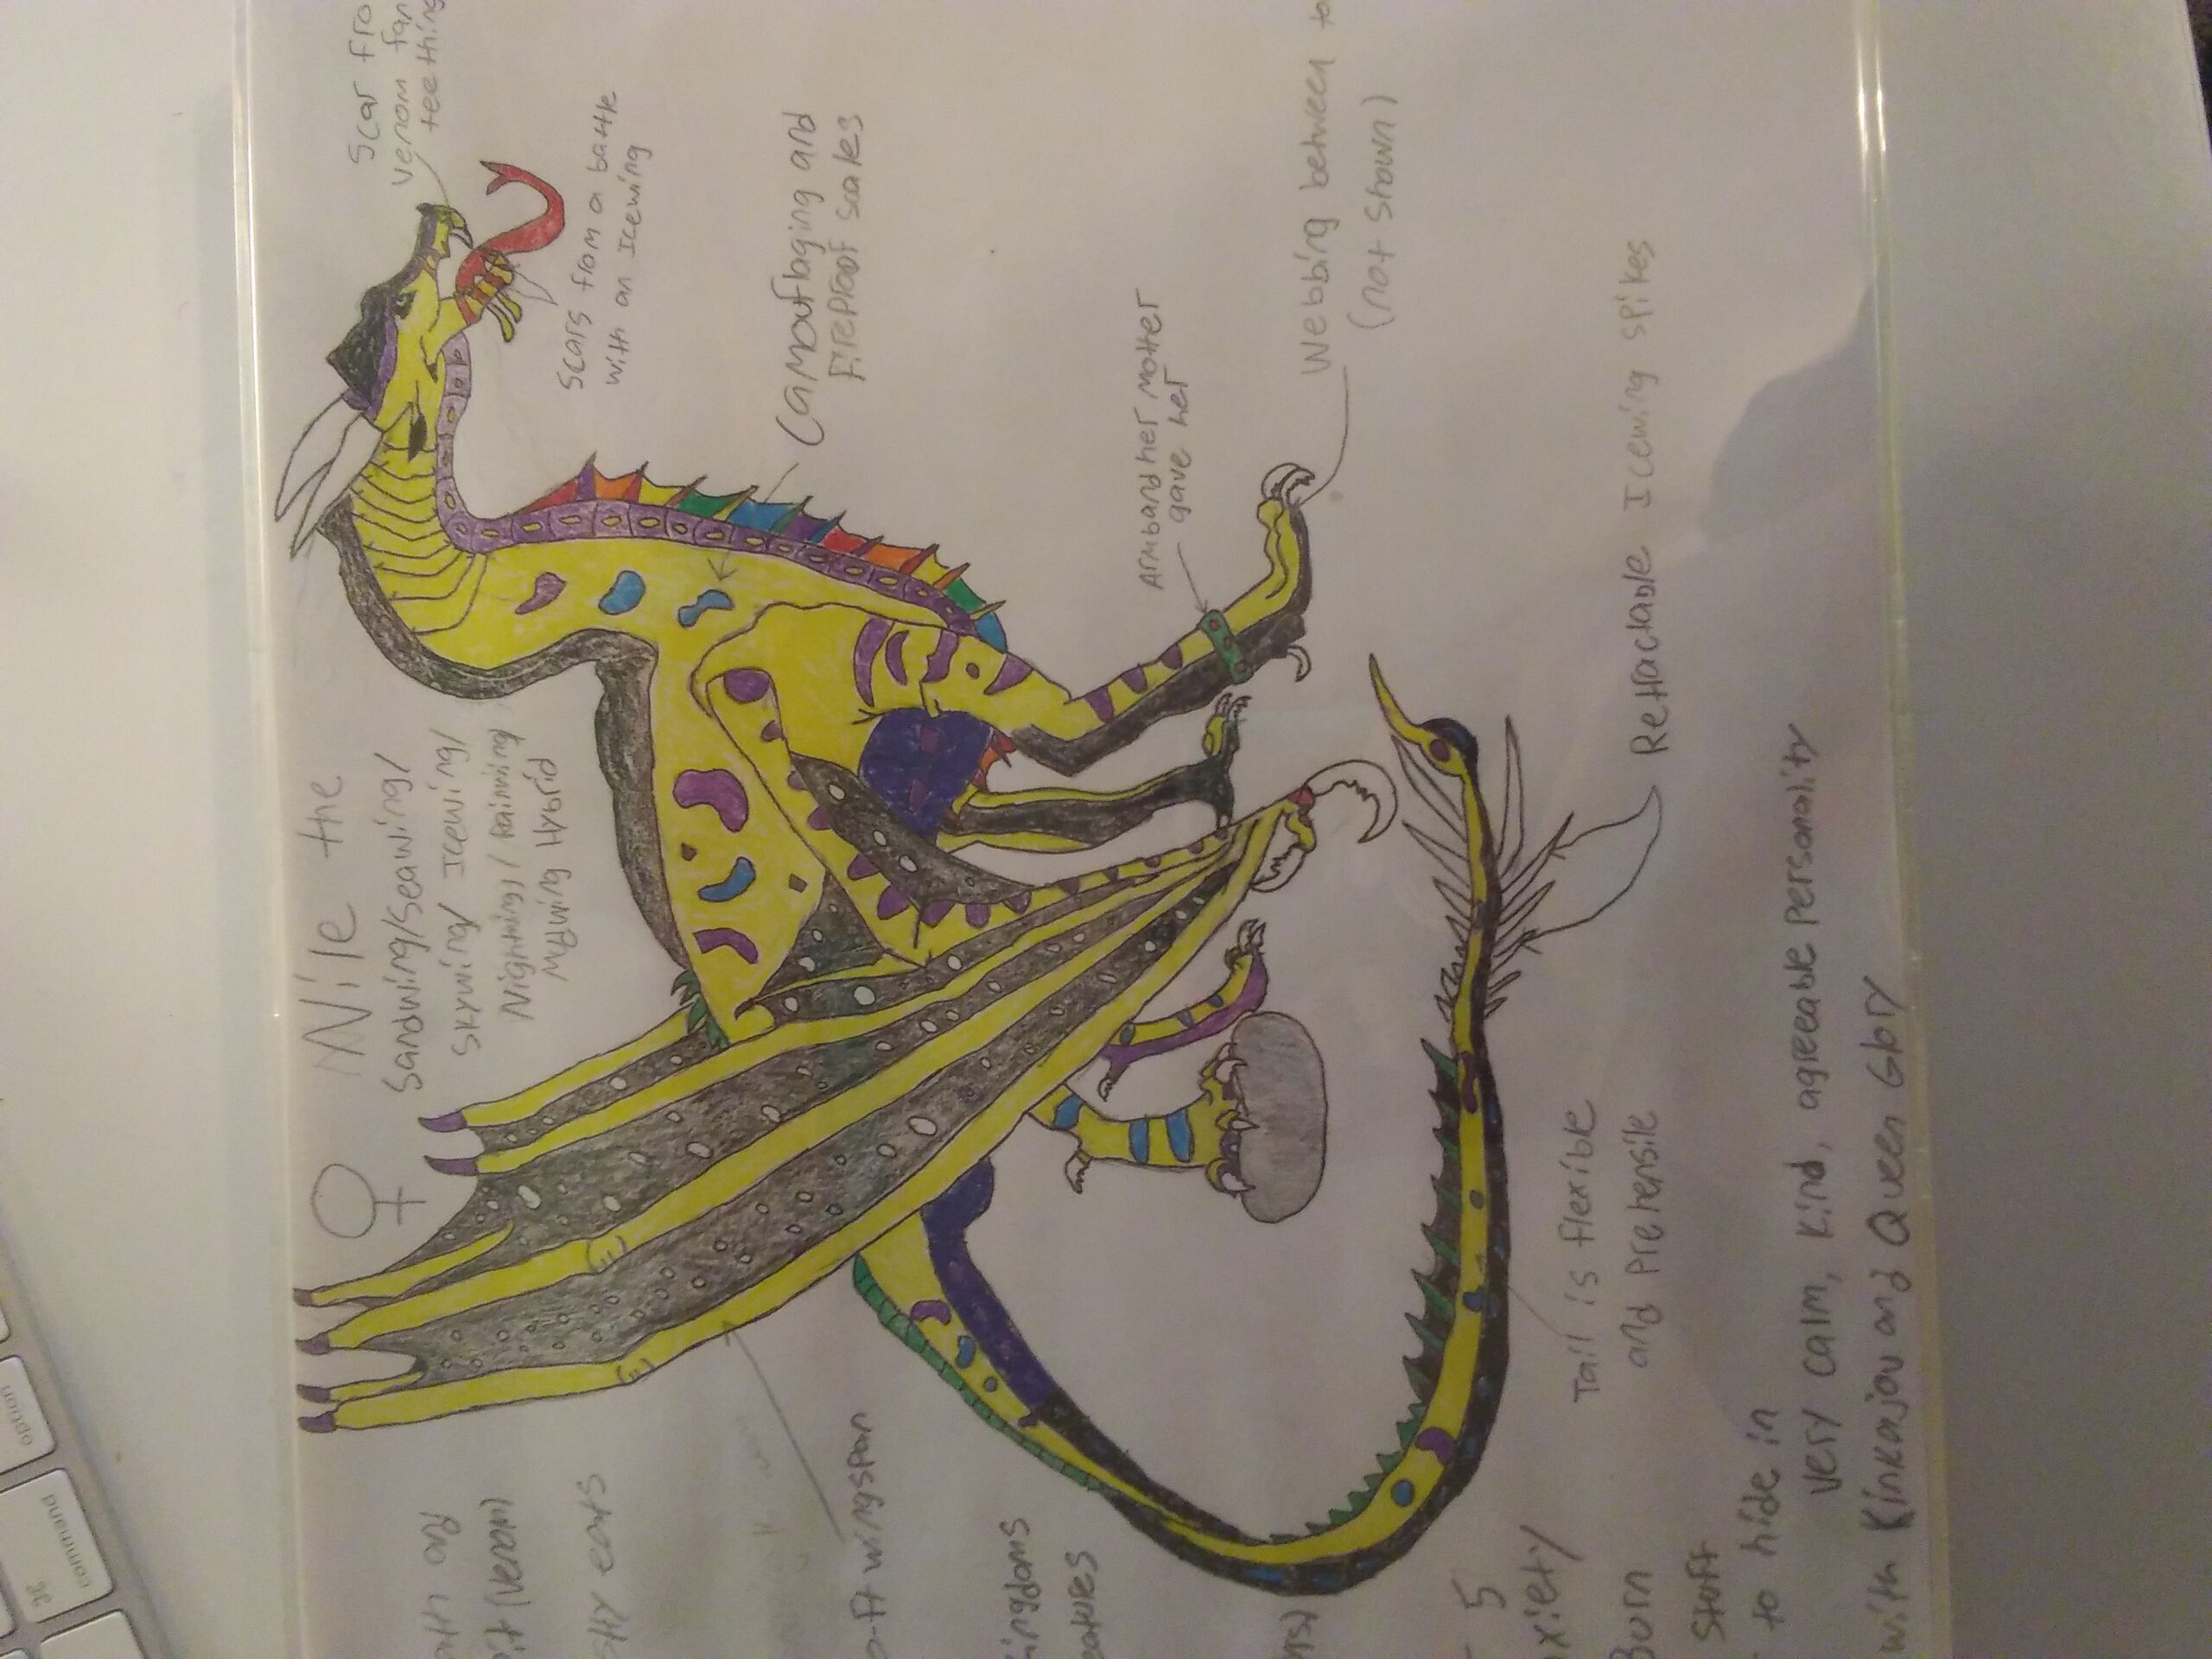 option
⌘
command
♀ Nile the
Sandwing/Seawing/
Skywing/Icewing/
Nightwing/Rainwing/
Mudwing Hybrid
Scar fro
venom fan
teething
Scars from a battle
with an Icewing
Camouflaging and
Fireproof scales
and
it (venom)
eats
ft wingspan
Armband her mother
gave her
Webbing between to
(not shown)
ingdoms
eatures
rs)
Retractable Icewing spikes
Tail is flexible
and prehensile
5
xiety
Burn
Stuff
to hide in
Very calm, kind, agreeable personality
with Kinkajou and Queen Glory